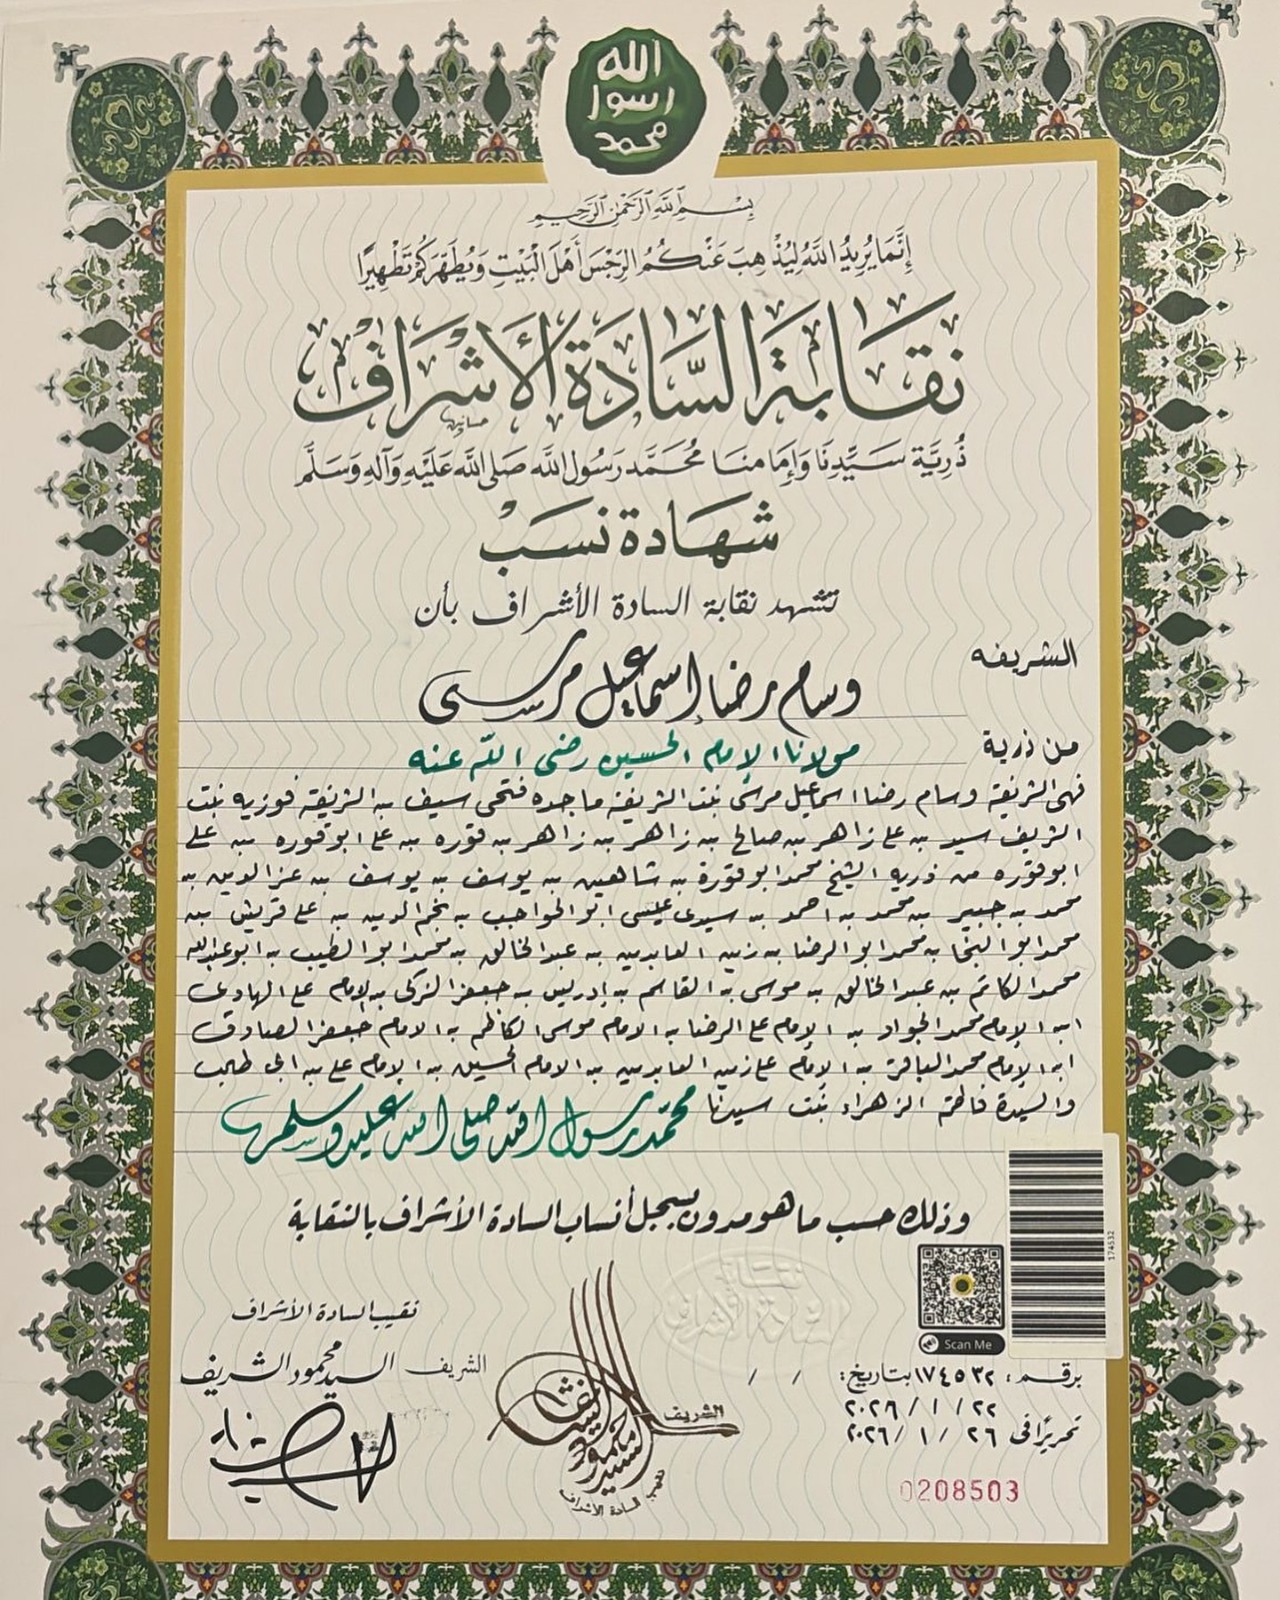 الله
رسول
محمد
بِسْمِ اللَّهِ الرَّحْمَٰنِ الرَّحِيمِ
إِنَّمَا يُرِيدُ اللَّهُ لِيُذْهِبَ عَنْكُمُ الرِّجْسَ أَهْلَ الْبَيْتِ وَيُطَهِّرَكُمْ تَطْهِيرًا
نقابة السادة الأشراف
ذُرِّيَّة سَيِّدِنَا وَإِمَامِنَا مُحَمَّد رَسُول اللَّه صَلَّى اللَّه عَلَيْهِ وَآلِهِ وَسَلَّم
شهادة نسب
تشهد نقابة السادة الأشراف بأن
الشريفه
وسام رضا إسماعيل مرسى
من ذرية
مولانا الإمام الحسين رضى الله عنه
فهى الشريفة وسام رضا اسماعيل مرسى بنت الشريفة ماجده فتحى سيف بن الشريفة فوزيه بنت
الشريف سيد بن على زاهر بن صالح بن زاهر بن زاهر بن قوره بن على ابوقوره بن على
ابوقوره من ذريه الشيخ محمد ابوقورة بن شاهين بن يوسف بن يوسف بن عز الدين بن
محمد بن جبير بن محمد بن احمد بن سيدى عيسى ابو الحواجب بن نجم الدين بن على قريش بن
محمد ابو النجا بن محمد ابو الرضا بن زين العابدين بن عبد الخالق بن محمد ابو الطيب بن ابو عبدالله
محمد الكاتم بن عبد الخالق بن موسى بن القاسم بن إدريس بن جعفر الزكى بن الإمام على الهادى
ابن الإمام محمد الجواد بن الإمام على الرضا بن الامام موسى الكاظم بن الامام جعفر الصادق
ابن الإمام محمد الباقر بن الإمام على زين العابدين بن الامام الحسين بن الإمام على بن ابى طالب
والسيدة فاطمة الزهراء بنت سيدنا محمد رسول الله صلى الله عليه وسلم
وذلك حسب ما هو مدون بسجل أنساب السادة الأشراف بالنقابة
174532
Scan Me
نقابة
السادة الأشراف
نقيب السادة الأشراف
الشريف السيد محمود الشريف
الشريف
نقيب السادة الأشراف
برقم: ١٧٤٥٣٢ بتاريخ: / /
٢٢ / ١ / ٢٠٢٦
تحريرًا فى ٢٦ / ١ / ٢٠٢٦
0208503